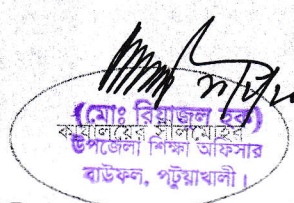 (মোঃ রিয়াজুল হক)
কার্যালয়ের সীলমোহর
উপজেলা শিক্ষা অফিসার
বাউফল, পটুয়াখালী।